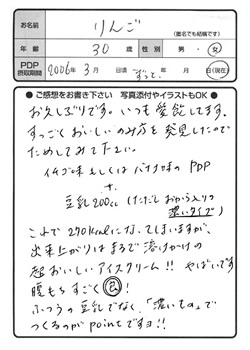 お名前 りんご (匿名でも結構です)
年齢 30 歳 性別 男・女
PDP摂取期間 2006年 3月 日頃 ずっと。 日(現在)
●ご感想をお書き下さい 写真添付やイラストもOK●
お久しぶりです。いつも愛飲してます。
すっごくおいしいのみ方を発見したので
ためしてみて下さい。
イチゴ味もしくはバナナ味の PDP
+
豆乳200cc (ただしおから入りの
濃いタイプ)
これで270kcalになってしまいますが、
出来上がりはまるで溶けかけの
超おいしいアイスクリーム!! やばいです
腹もちすごく良!
ふつうの豆乳でなく、「濃いもの」で
つくるがpointですヨ!!